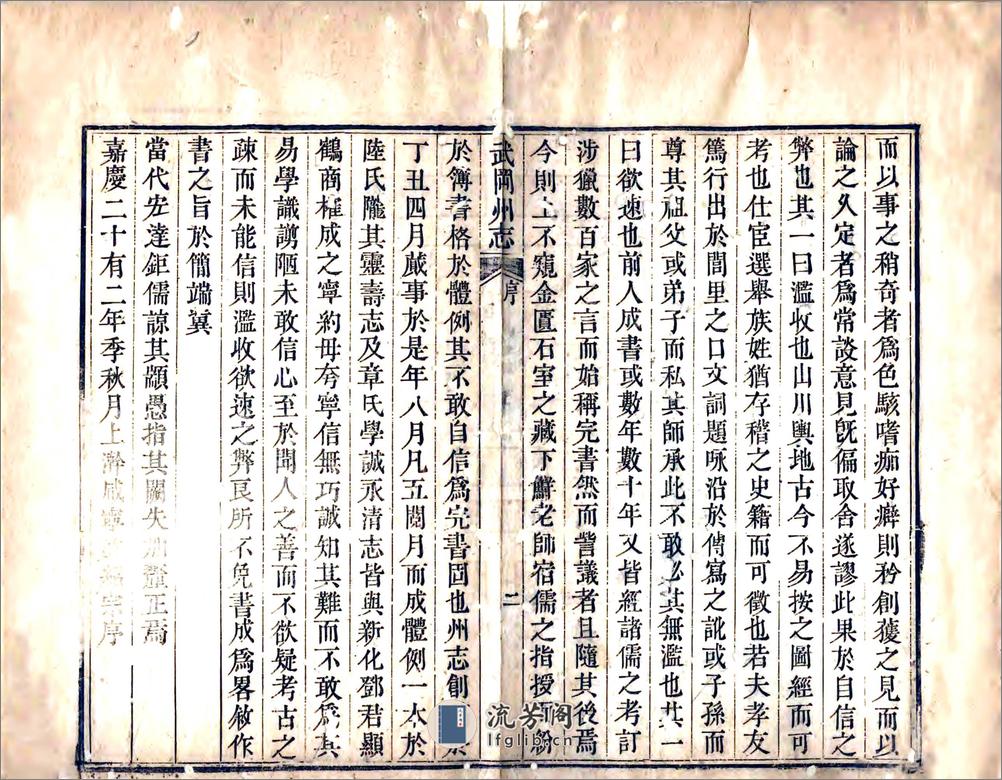 而以事之稍奇者爲色駭嗜痂好癖則矜創獲之見而以
論之久定者爲常談意見旣偏取舍遂謬此果於自信之
弊也其一曰濫收也山川輿地古今不易按之圖經而可
考也仕宦選舉族姓猶存稽之史籍而可徵也若夫孝友
篤行出於閭里之口文詞題咏沿於傳寫之訛或子孫而
尊其祖父或弟子而私其師承此不敢必其無濫也其一
曰欲速也前人成書或數年數十年又皆經諸儒之考訂
涉獵數百家之言而始稱完書然而訾議者且隨其後焉
今則上不窺金匱石室之藏下鮮老師宿儒之指授而紛
武岡州志
序
二
於簿書格於體例其不敢自信爲完書固也州志創
丁丑四月蕆事於是年八月凡五閱月而成體例一本於
陸氏隴其靈壽志及章氏學誠永清志皆與新化鄧君顯
鶴商榷成之寧約毋夸寧信無巧誠知其難而不敢爲其
易學識謭陋未敢信心至於聞人之善而不欲疑考古之
疎而未能信則濫收欲速之弊良所不免書成爲畧敘作
書之旨於簡端冀
當代宏達鉅儒諒其顓愚指其闕失加正焉
嘉慶二十有二年季秋月上澣咸寧序
流芳閣
lfglib.cn